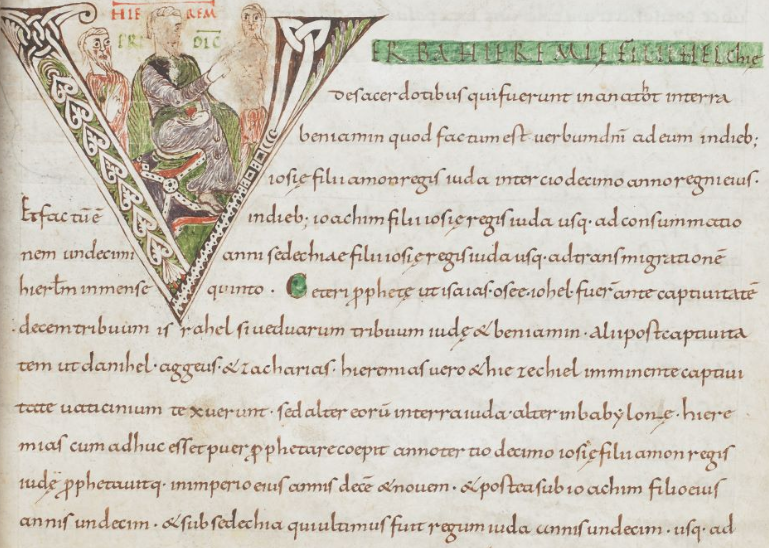 HIE REM
PRE DIC
VERBA HIEREMIE FILII HELChie
de sacerdotibus qui fuerunt in anatot in terra
beniamin quod factum est uerbum dnī ad eum in dieb;
iosię filii amon regis iuda in tercio decimo anno regni eius ·
Et factū ē in dieb; ioachim filii iosię regis iuda usq· ad consummatio
nem undecimi anni sedechiae filii iosię regis iuda usq· ad transmigrationē
hierłm in mense quinto · Ceteri pphetę ut isaias · osee · iohel · fueŕ ante captiuitatē
decem tribuum israhel siue duarum tribuum iudę & beniamin · alii post captiuita
tem ut danihel · aggeus · & zacharias · hieremias uero & hiezechiel imminente captiui
tate uaticinium texuerunt · sed alter eorū in terra iuda · alter in babylone · hiere
mias cum adhuc esset puer pphetare coepit anno tertio decimo iosię filii amon regis
iudę pphetauitq· in imperio eius annis decē & nouem · & postea sub ioachim filio eius
annis undecim · & sub sedechia qui ultimus fuit regum iuda annis undecim · usq· ad